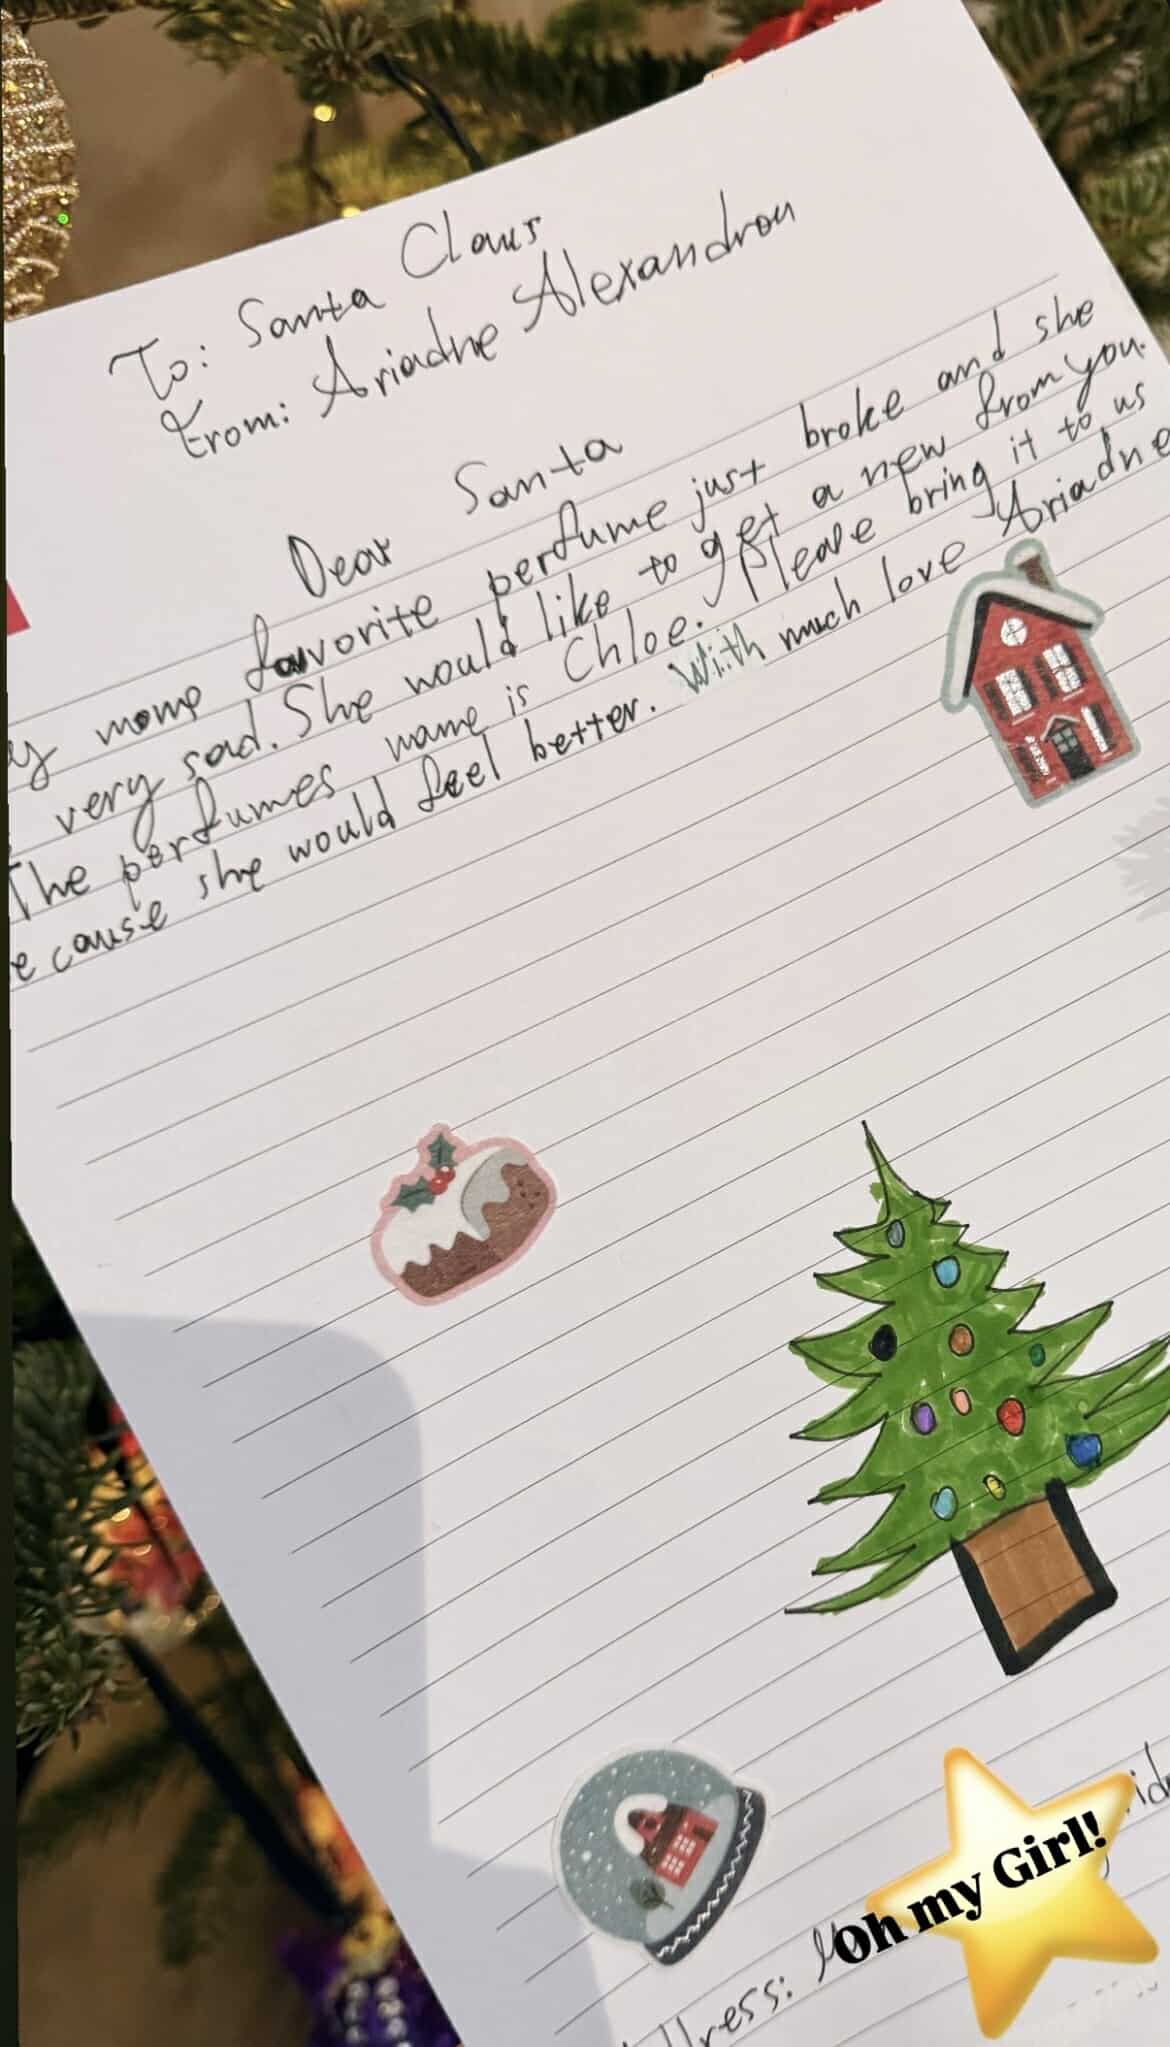 To: Santa Claus
From: Ariadne Alexandrou
Dear Santa
y moms favorite perfume just broke and she
very sad. She would like to get a new from you.
The perfumes name is Chloe. Please bring it to us
ecause she would feel better. With much love Ariadne
dress:
Oh my Girl!